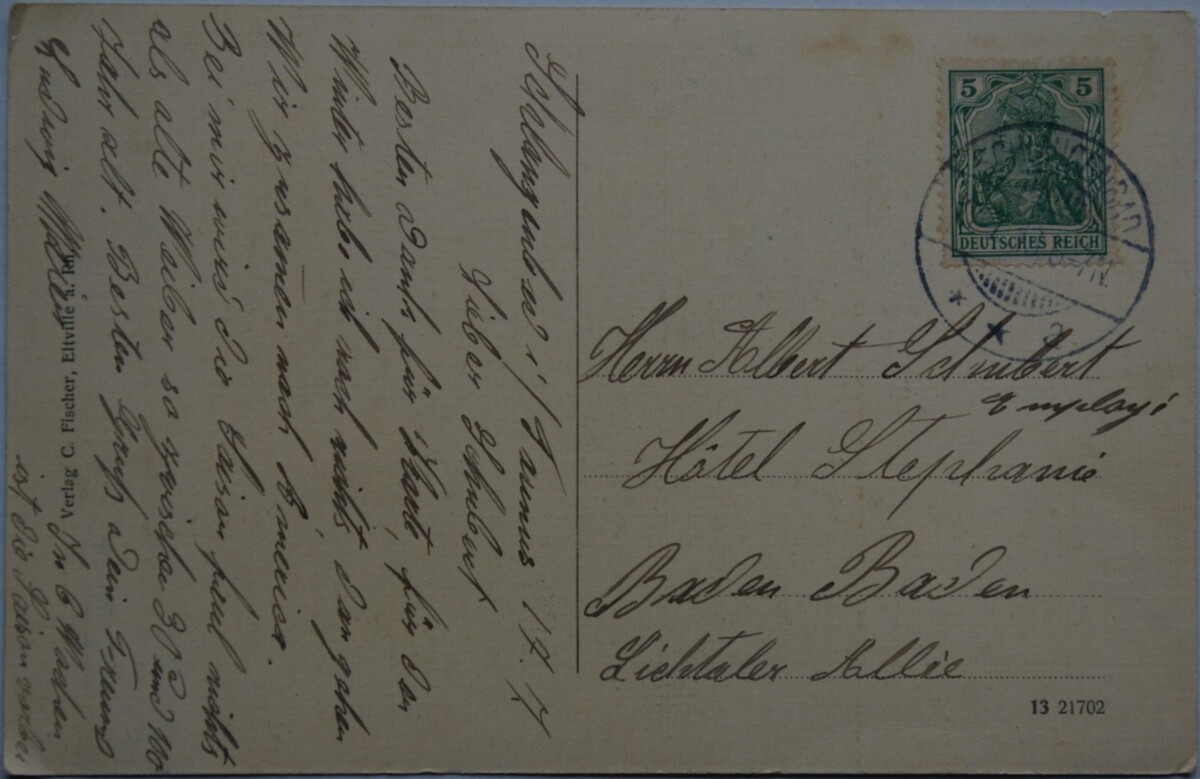 Schlangenbad i/Taunus 17. 7.
Lieber Schubert
Besten Dank für Karte, für den
Winter habe ich noch nichts, dan gehen
Wir zusamen nach
Bei mir wird die Saison faul nichts
als alte Weiber so zwischen 30 und 100
Jahr alt. Besten Gruß Dein Freund
Ludwig
In 6 Wochen
ist die Saison vorbei
Verlag C. Fischer, Eltville a. Rh.
5 5
DEUTSCHES REICH
Herrn Albert Schubert
Employé
Hôtel Stephanie
Baden Baden
Lichtaler Allee
13 21702